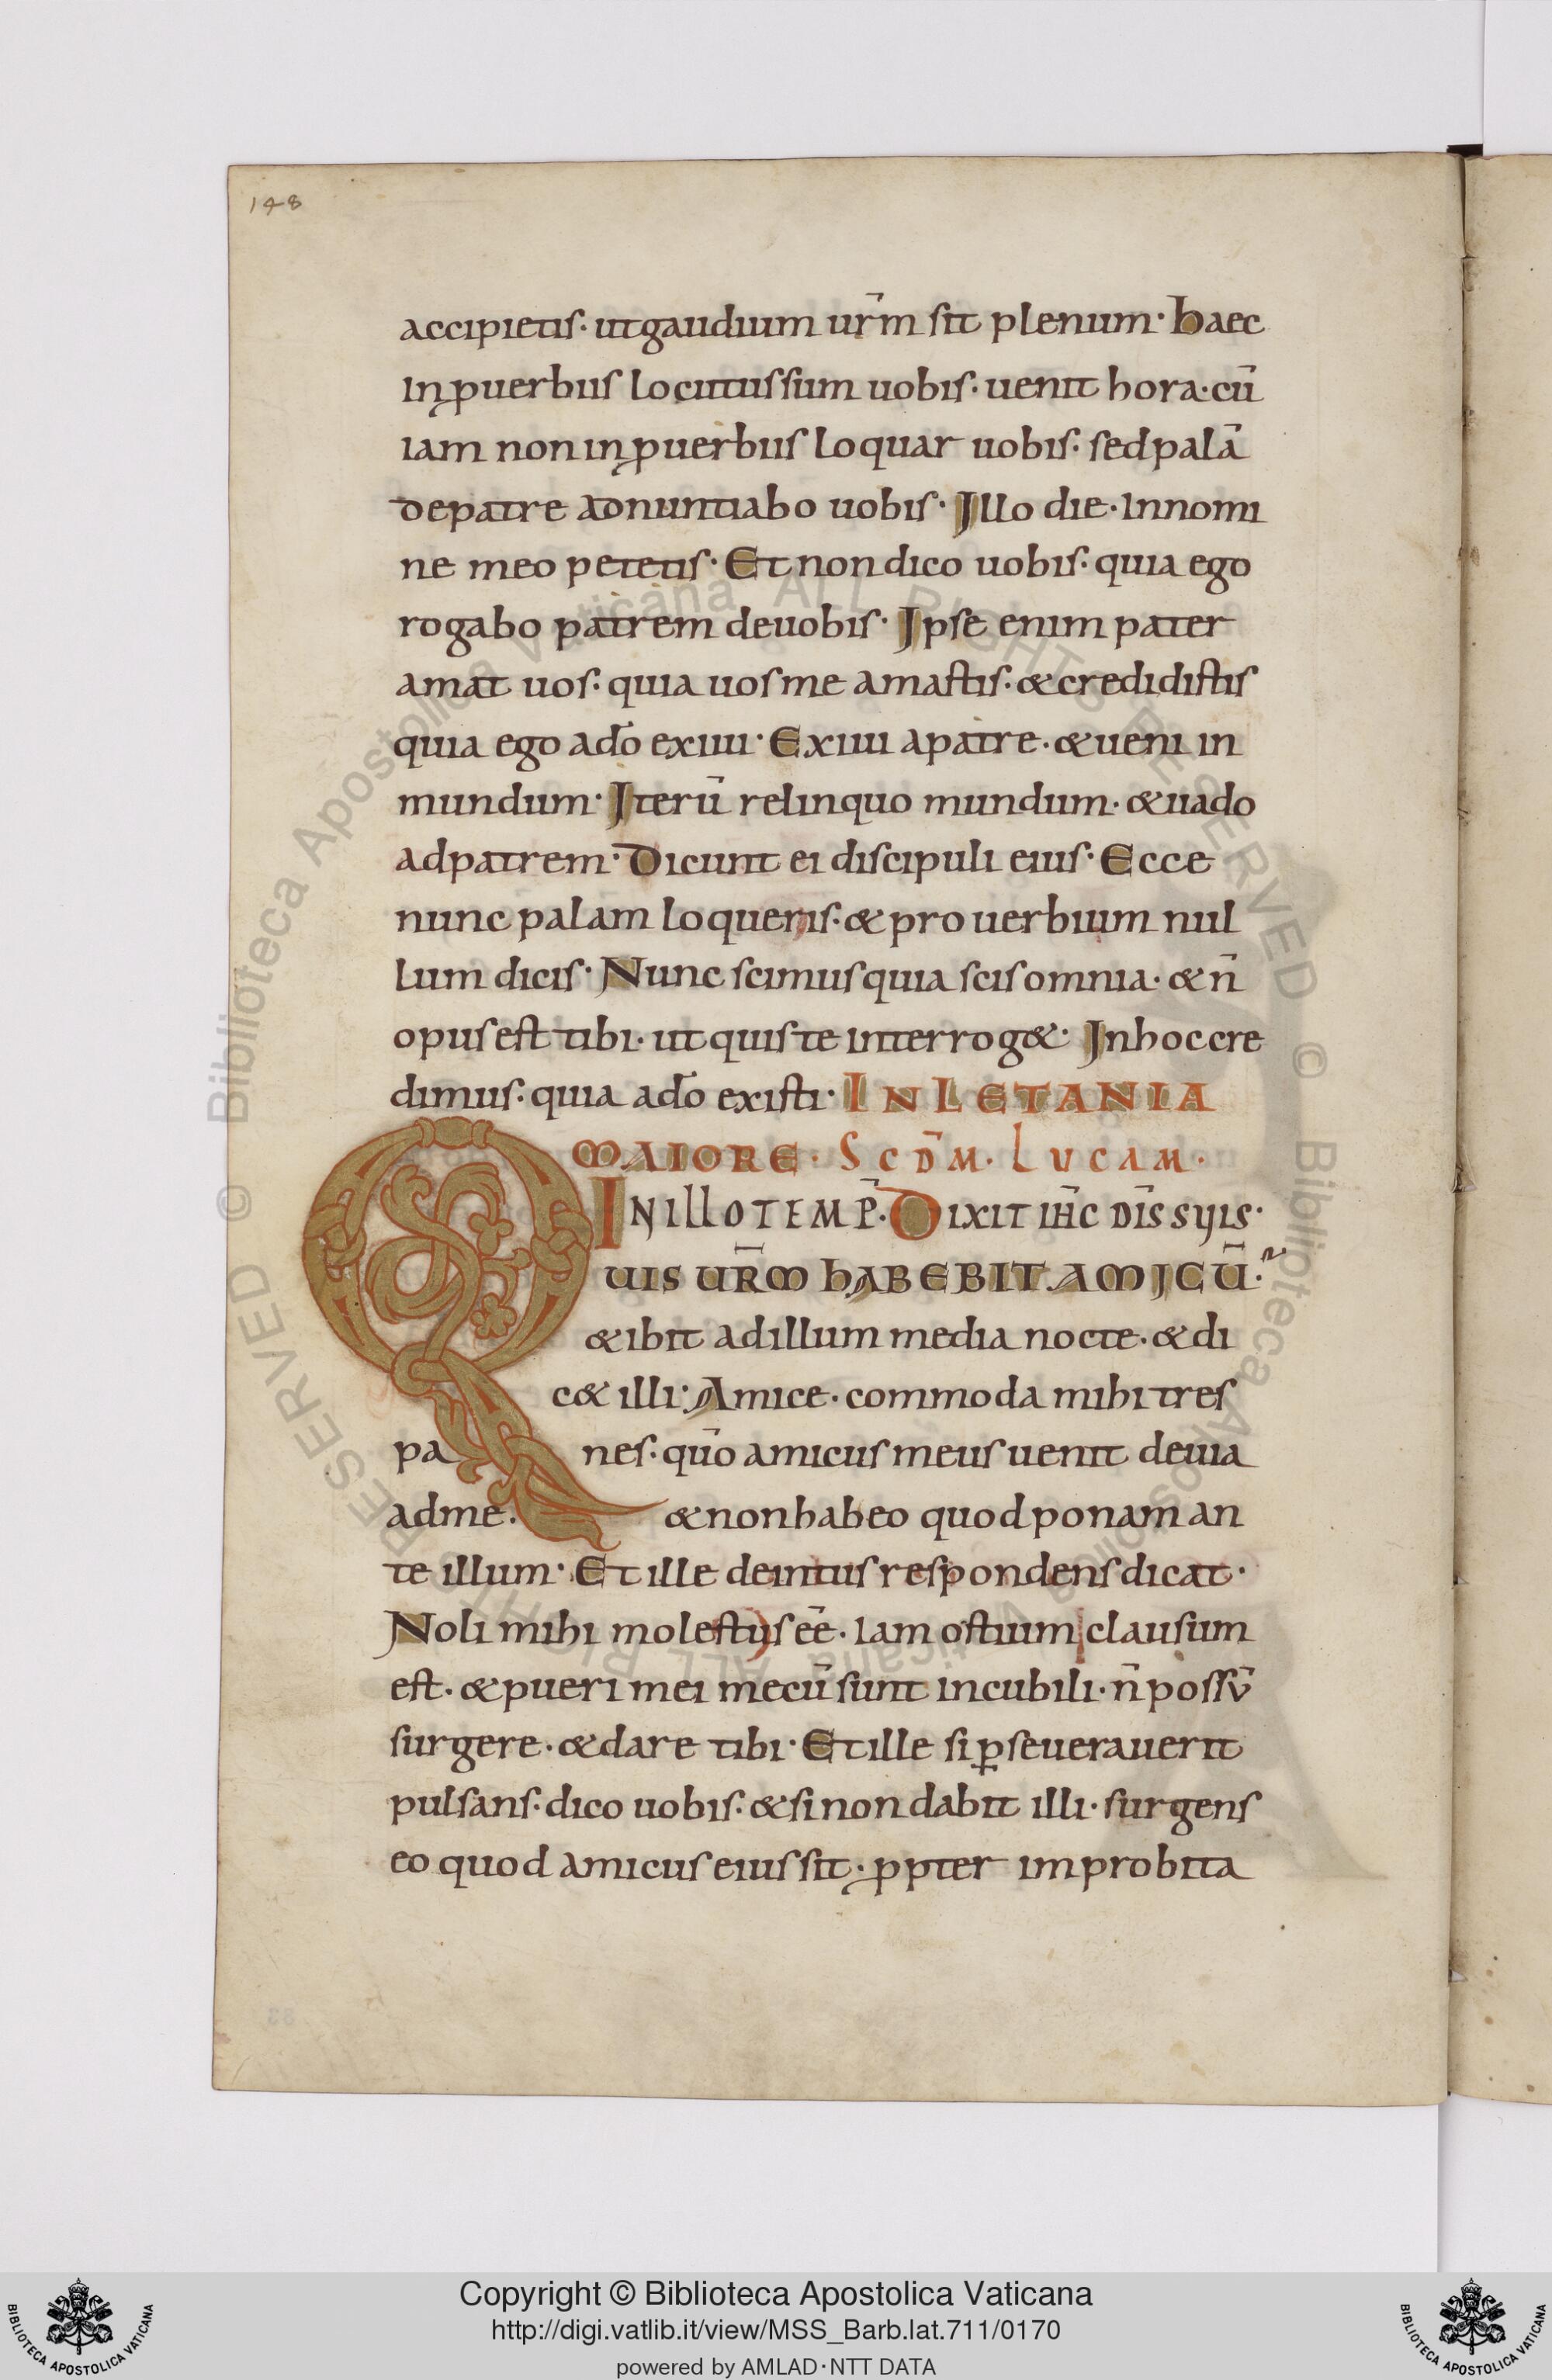 148
accipietis· utgaudium ur̄m sit plenum· haec
inꝓuerbiis locutussum uobis· uenit hora· cū
iam non inꝓuerbiis loquar uobis· sedpalā
depatre adnuntiabo uobis· Illo die· Innomi
ne meo petetis· Et nondico uobis· quia ego
rogabo patrem deuobis· Ipse enim pater
amat uos· quia uosme amastis· &credidistis
quia ego adō exiui· Exiui apatre· &ueni in
mundum· Iterū relinquo mundum· &uado
adpatrem· Dicunt ei discipuli eius· Ecce
nunc palam loqueris· &prouerbium nul
lum dicis· Nunc scimusquia scisomnia· & n̄
opusest tibi· ut quiste interrog&· Inhoccre
dimus· quia adō existi· IN LETANIA
MAIORE· SCDM̄· LUCAM·
IN ILLO TEMP̄· DIXIT IH̄C DIS̄ SUIS·
QUIS UR̄M HABEBIT AMICŪ·
&ibit adillum media nocte· &di
c& illi· Amice· commoda mihi tres
panes· quō amicus meus uenit deuia
adme· &nonhabeo quodponam an
te illum· Et ille deintus respondens dicat·
Noli mihi molestus eē· Iam ostium clausum
est· &pueri mei mecū sunt incubili· n̄ possv̄
surgere· &dare tibi· Et ille si ꝑseuerauerit
pulsans· dico uobis· &sinon dabit illi· surgens
eo quod amicus eius sit· ꝓpter improbita
Copyright © Biblioteca Apostolica Vaticana
http://digi.vatlib.it/view/MSS_Barb.lat.711/0170
powered by AMLAD·NTT DATA
BIBLIOTECA APOSTOLICA VATICANA
BIBLIOTECA APOSTOLICA VATICANA